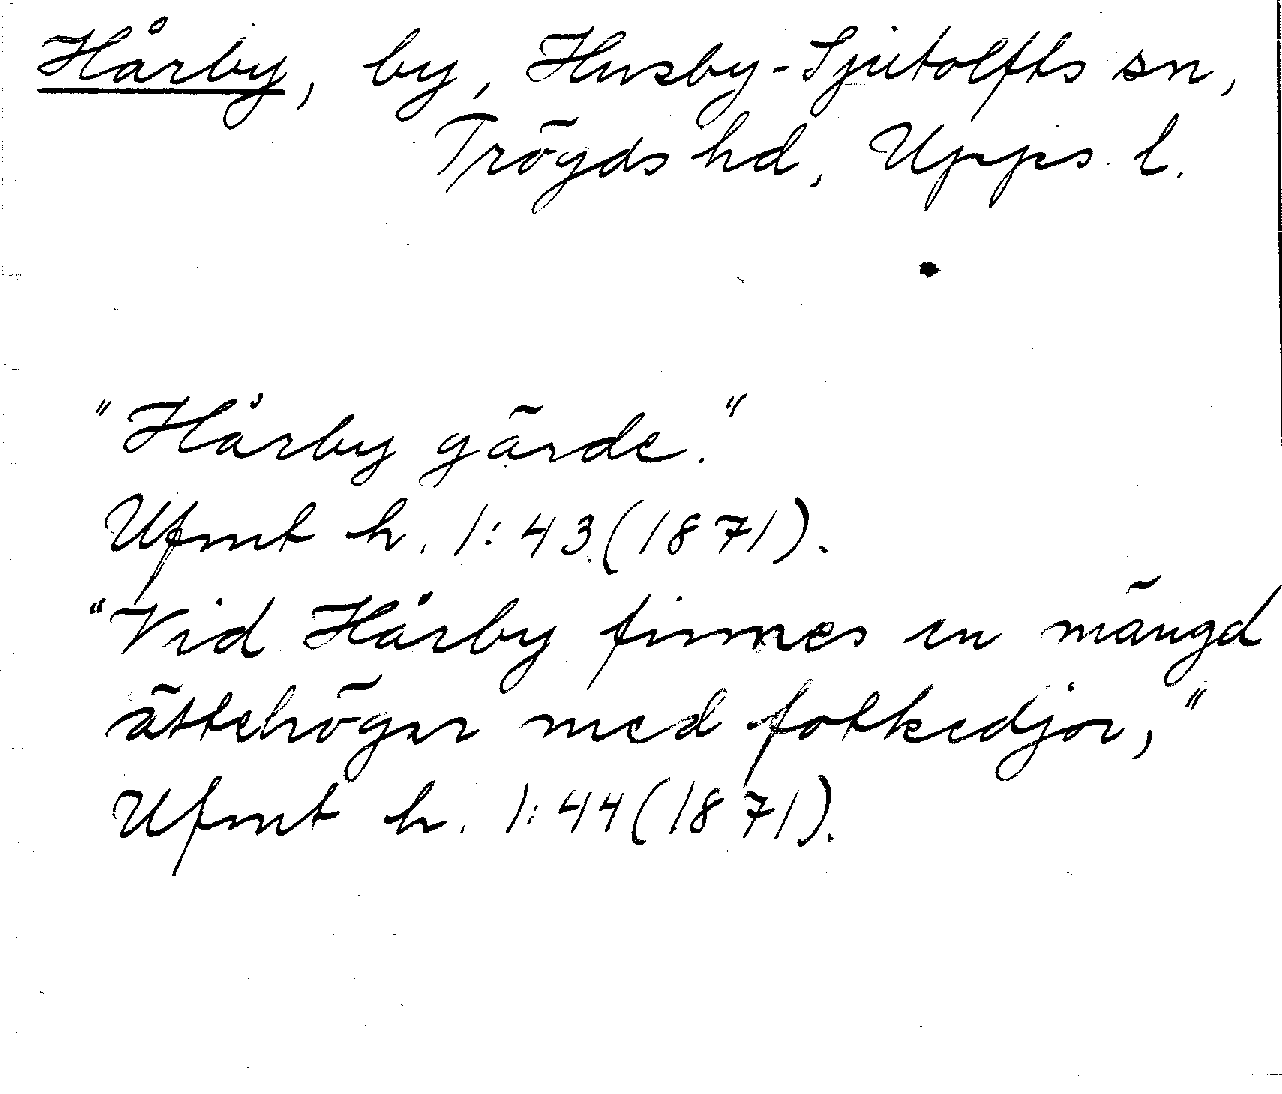 Hårby, by, Husby-Sjutolfts sn,
Trögds hd, Upps. l.
"Hårby gärde."
Ufmt h. 1:43 (1871).
"Vid Hårby finnes en mängd
ättehögar med fotkedjor,"
Ufmt h. 1:44 (1871).